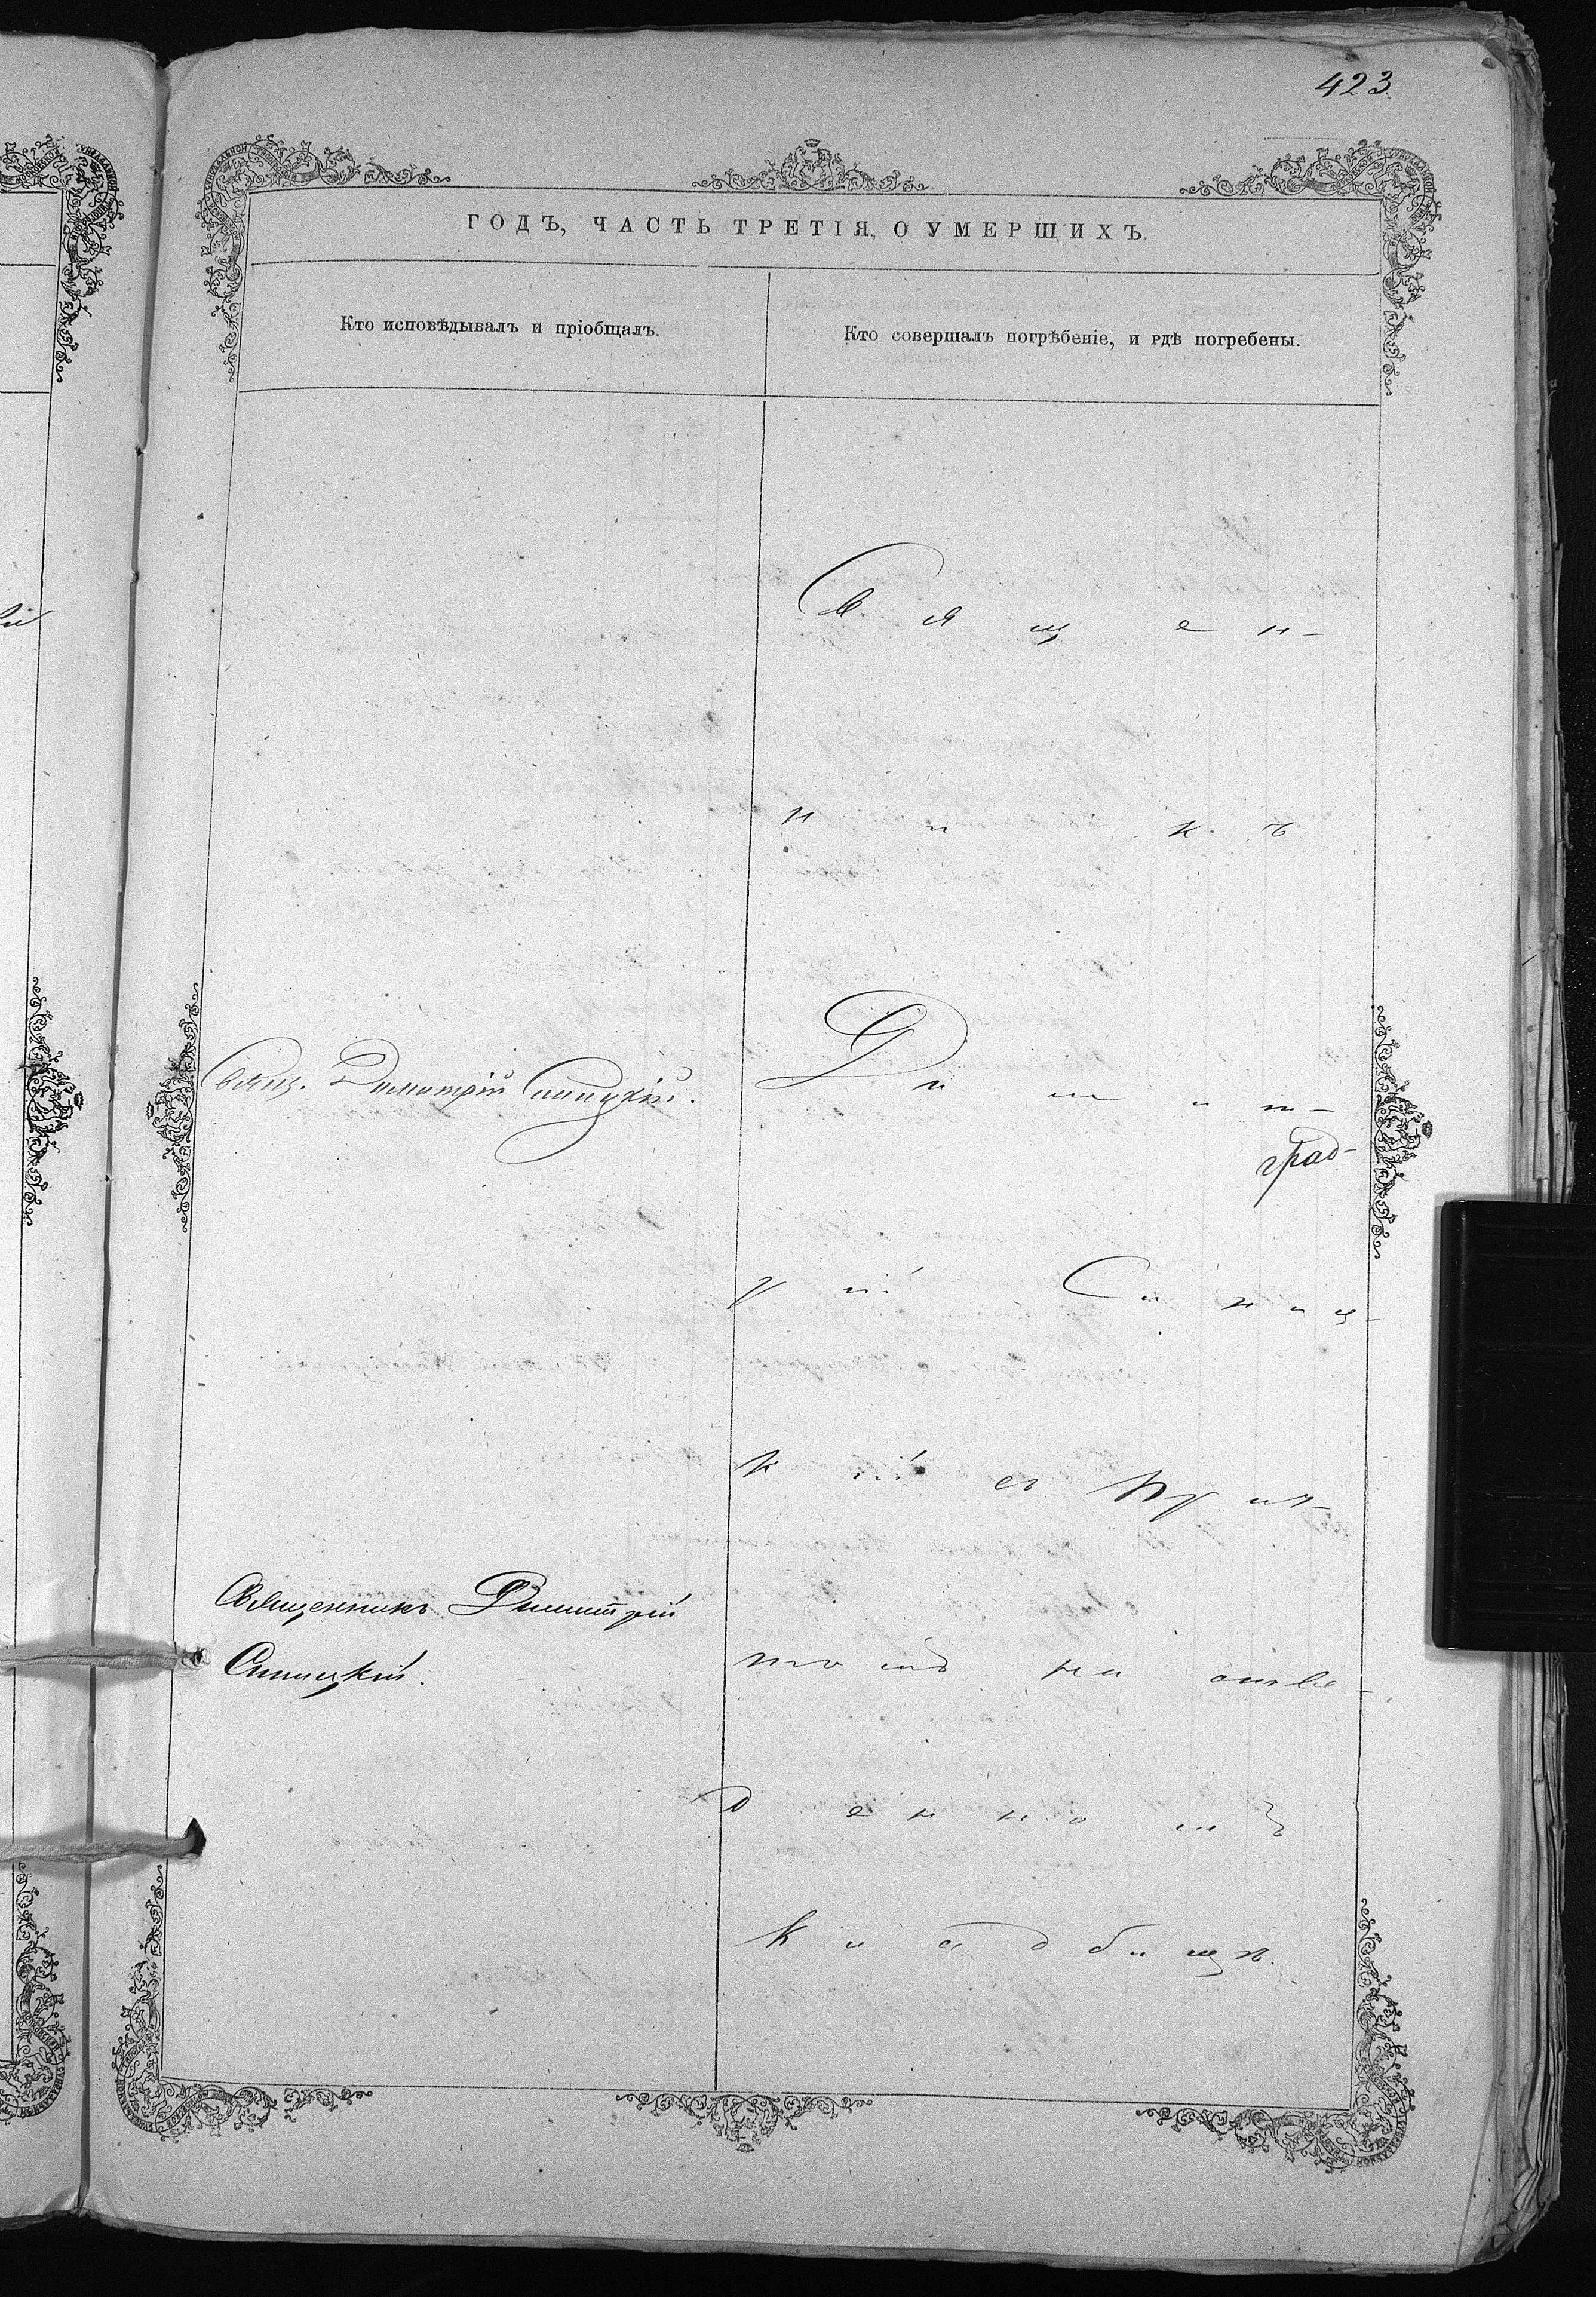 423.
ГОДЪ, ЧАСТЬ ТРЕТІЯ, О УМЕРШИХЪ.
Кто исповѣдывалъ и пріобщалъ.
Кто совершалъ погрѣбеніе, и гдѣ погребены.
Свящ. Димитрій Синицкій.
Священникъ Димитрій
Синицкій.
Священ-
никъ
Димит-
рій Синиц-
кій съ прич-
томъ на отве-
денномъ
кладбищѣ.